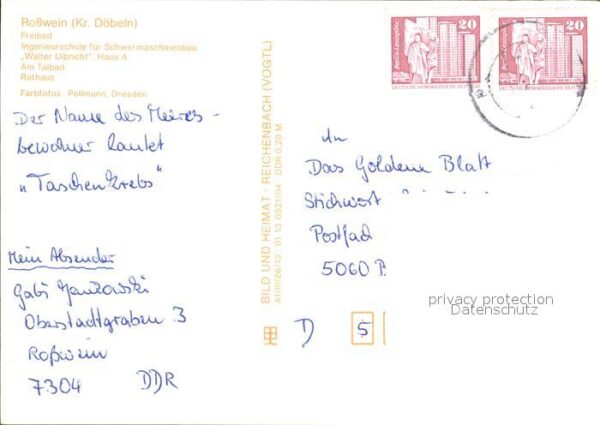 Roßwein (Kr. Döbeln)
Freibad
Ingenieurschule für Schwermaschinenbau
„Walter Ulbricht", Haus A
Am Talbad
Rathaus
Farbfotos: Pellmann, Dresden
Der Name des Meeres-
bewohner lautet
„Taschenkrebs"
Mein Absender
Gabi Jankowski
Oberstadtgraben 3
Roßwein
7304 DDR
BILD UND HEIMAT · REICHENBACH (VOGTL)
A1/III/26/13 · 01 13 0521/04 · DDR 0,20 M
20
Berlin-Leninplatz
DEUTSCHE DEMOKRATISCHE REPUBLIK
20
Berlin-Leninplatz
An
Das Goldene Blatt
Stichwort
Postfach
5060
D 5
privacy protection
Datenschutz